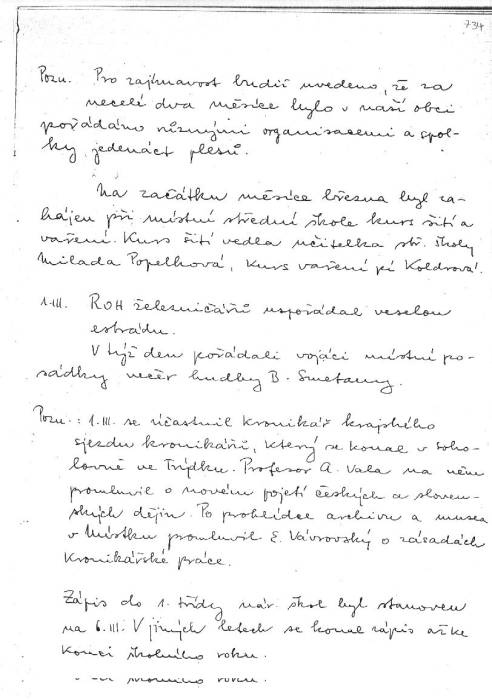 734
Pozn. Pro zajímavost budiž uvedeno, že za
necelé dva měsíce bylo v naší obci
pořádáno různými organisacemi a spol-
ky jedenáct plesů.
Na začátku měsíce března byl za-
hájen při místní střední škole kurs šití a
vaření. Kurs šití vedla učitelka stř. školy
Milada Popelková, kurs vaření pí Koldrová.
1.III. ROH železničářů uspořádal veselou
estrádu.
V týž den pořádali vojáci místní po-
sádky večer hudby B. Smetany.
Pozn.: 1.III. se účastnil kronikář krajského
sjezdu kronikářů, který se konal v Soko-
lovně ve Frýdku. Profesor A. Vala na něm
promluvil o novém pojetí českých a sloven-
ských dějin. Po prohlídce archivu a musea
v Místku promluvil E. Vávrovský o zásadách
kronikářské práce.
Zápis do 1. třídy nár. škol byl stanoven
na 6.III. V jiných letech se konal zápis až ke
konci školního roku.
školního roku.